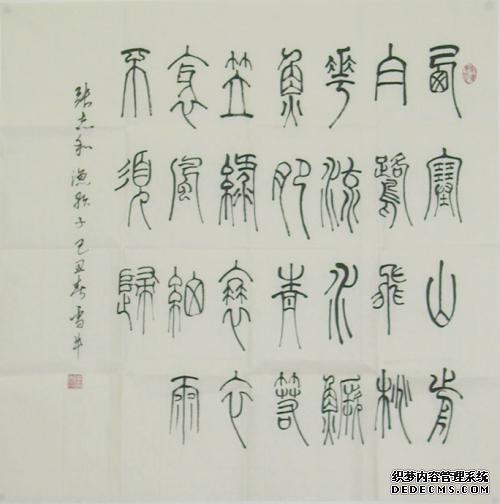 西塞山前
白鷺飛桃
華流水鱖
魚肥青箬
笠綠蓑衣
衺風細雨
不須歸
張志和漁歌子己丑春雪牛
织梦内容管理系统
DEDECMS.COM